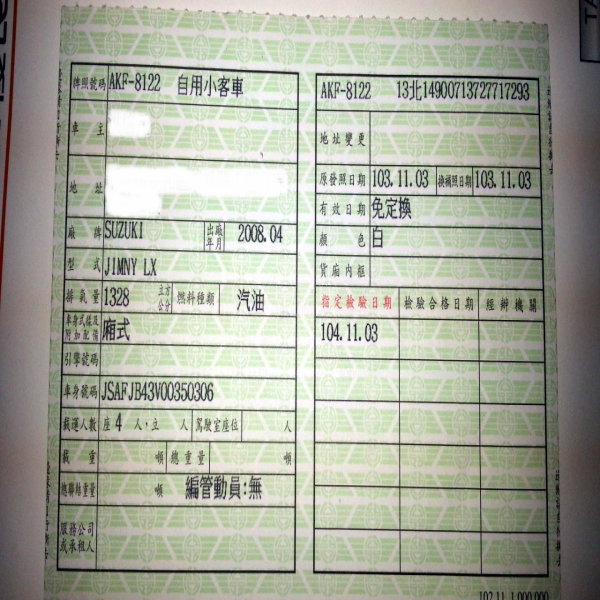 牌照號碼 AKF-8122 自用小客車
車主
地址
廠牌 SUZUKI 出廠年月 2008.04
型式 JIMNY LX
排氣量 1328 立方公分 燃料種類 汽油
車身式樣及附加配備 廂式
引擎號碼
車身號碼 JSAFJB43V00350306
載運人數 座 4 人,立 人 駕駛室座位 人
載重 噸 總重量 噸
總聯結重量 噸 編管動員:無
服務公司或承租人
AKF-8122 13北14900713727717293
地址變更
原發照日期 103.11.03 換補照日期 103.11.03
有效日期 免定換
顏色 白
貨廂內框
指定檢驗日期 檢驗合格日期 經辦機關
104.11.03
102.11. 1,000,000